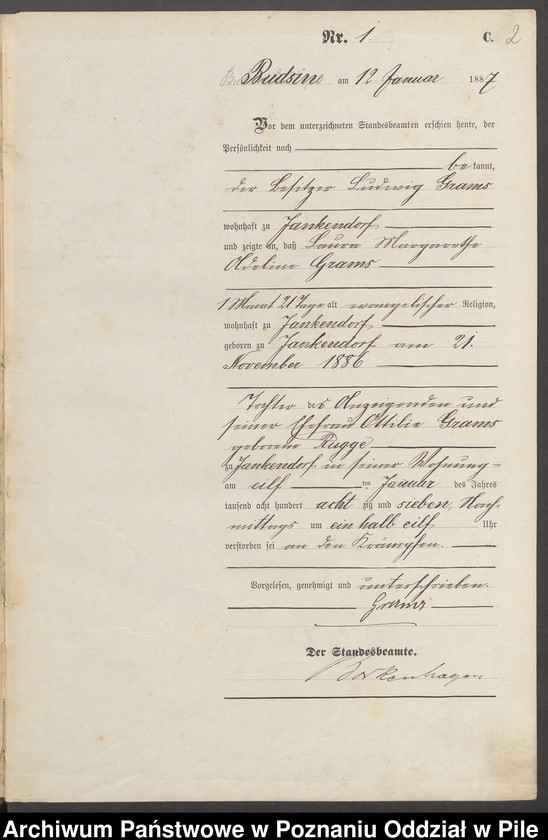 Nr. 1. C. 2
Budsin am 12 Januar 1887
Vor dem unterzeichneten Standesbeamten erschien heute, der
Persönlichkeit nach
bekannt,
der Besitzer Ludwig Grams
wohnhaft zu Jankendorf
und zeigte an, daß Laura Margarethe
Adeline Grams
1 Monat 21 Tage alt evangelischer Religion,
wohnhaft zu Jankendorf
geboren zu Jankendorf am 21.
November 1886
Tochter des Anzeigenden und
seiner Ehefrau Ottilie Grams
geborene Rugge
zu Jankendorf in seiner Wohnung
am eilften Januar des Jahres
tausend acht hundert achtzig und sieben, Nach-
mittags um ein halb eilf Uhr
verstorben sei an den Krämpfen.
Vorgelesen, genehmigt und unterschrieben.
Grams
Der Standesbeamte.
Borkenhagen
Archiwum Państwowe w Poznaniu Oddział w Pile